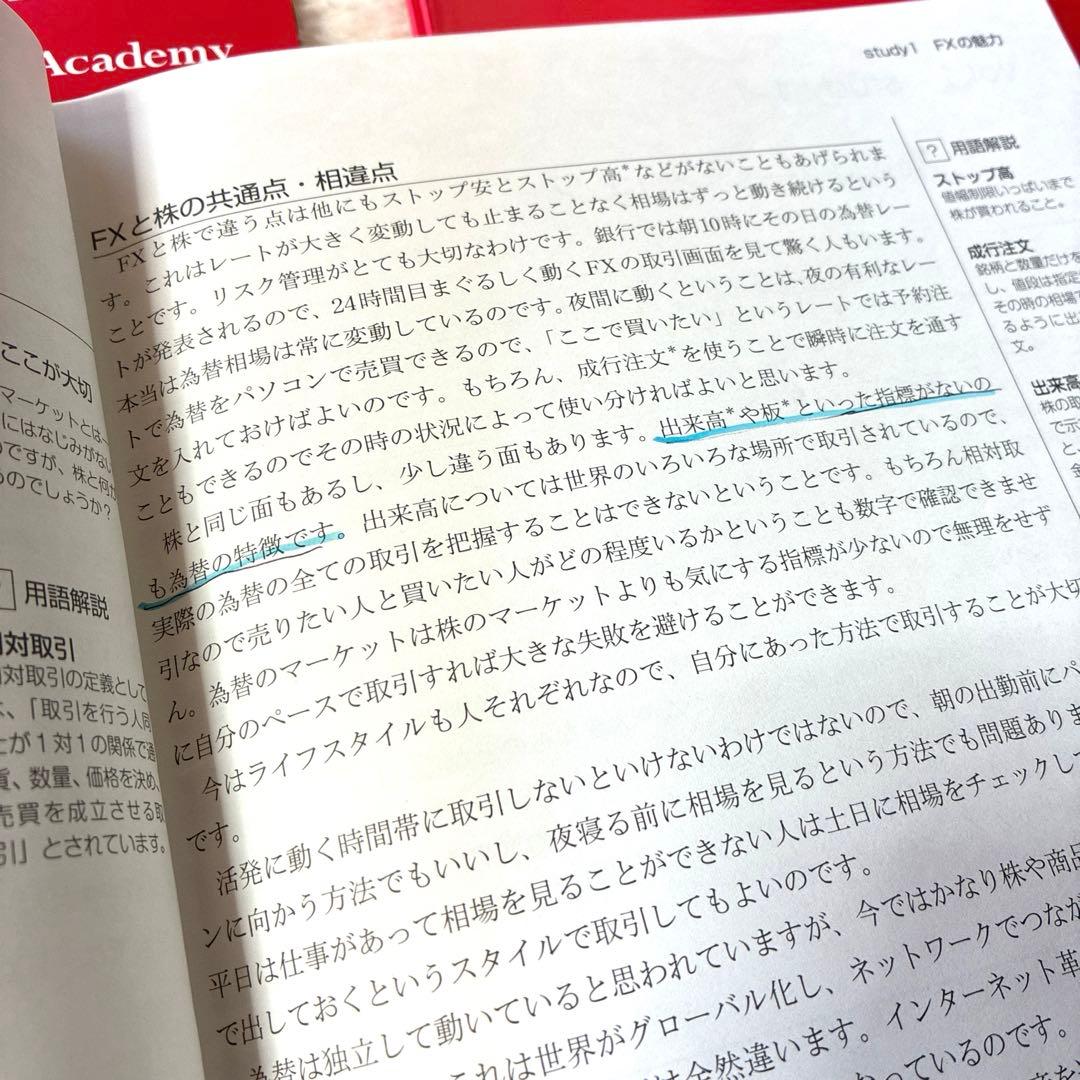 Academy
study1 FXの魅力
FXと株の共通点・相違点
FXと株で違う点は他にもストップ安とストップ高*などがないこともあげられま
す。これはレートが大きく変動しても止まることなく相場はずっと動き続けるという
ことです。リスク管理がとても大切なわけです。銀行では朝10時にその日の為替レー
トが発表されるので、24時間目まぐるしく動くFXの取引画面を見て驚く人もいます。
本当は為替相場は常に変動しているのです。夜間に動くということは、夜の有利なレー
トで為替をパソコンで売買できるので、「ここで買いたい」というレートでは予約注
文を入れておけばよいのです。もちろん、成行注文*を使うことで瞬時に注文を通す
こともできるのでその時の状況によって使い分ければよいと思います。
株と同じ面もあるし、少し違う面もあります。出来高*や板*といった指標がないの
も為替の特徴です。出来高については世界のいろいろな場所で取引されているので、
実際の為替の全ての取引を把握することはできないということです。もちろん相対取
引なので売りたい人と買いたい人がどの程度いるかということも数字で確認できませ
ん。為替のマーケットは株のマーケットよりも気にする指標が少ないので無理をせず
に自分のペースで取引すれば大きな失敗を避けることができます。
今はライフスタイルも人それぞれなので、自分にあった方法で取引することが大切
です。
活発に動く時間帯に取引しないといけないわけではないので、朝の出勤前にパ
ンに向かう方法でもいいし、夜寝る前に相場を見るという方法でも問題ありま
平日は仕事があって相場を見ることができない人は土日に相場をチェックして
で出しておくというスタイルで取引してもよいのです。
為替は独立して動いていると思われていますが、今ではかなり株や商品
これは世界がグローバル化し、ネットワークでつなが
は全然違います。インターネット革
っているのです。
? 用語解説
ストップ高
値幅制限いっぱいまで
株が買われること。
成行注文
銘柄と数量だけを
し、値段は指定
その時の相場
るように出
文。
出来高
株の取
で示
と、
ここが大切
マーケットとは
にはなじみがな
のですが、株と何が
るのでしょうか?
用語解説
対取引
対取引の定義として
は、「取引を行う人同
とが1対1の関係で通
貨、数量、価格を決め、
売買を成立させる取
引」とされています。